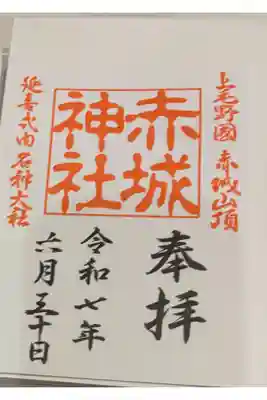 上毛野國 赤城山頂
奉拝
赤城
神社
令和七年
六月三十日
延喜式内 名神大社